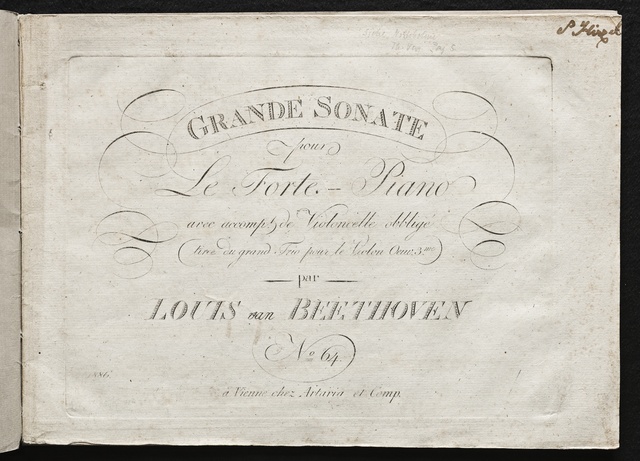 P Hirzel
GRANDE SONATE
pour
Le Forte-Piano
avec accompt de Violoncelle obbligé
(tirée du grand Trio pour le Violon Oeuv: 3.me)
par
LOUIS van BEETHOVEN
No 64
à Vienne chez Artaria et Comp.